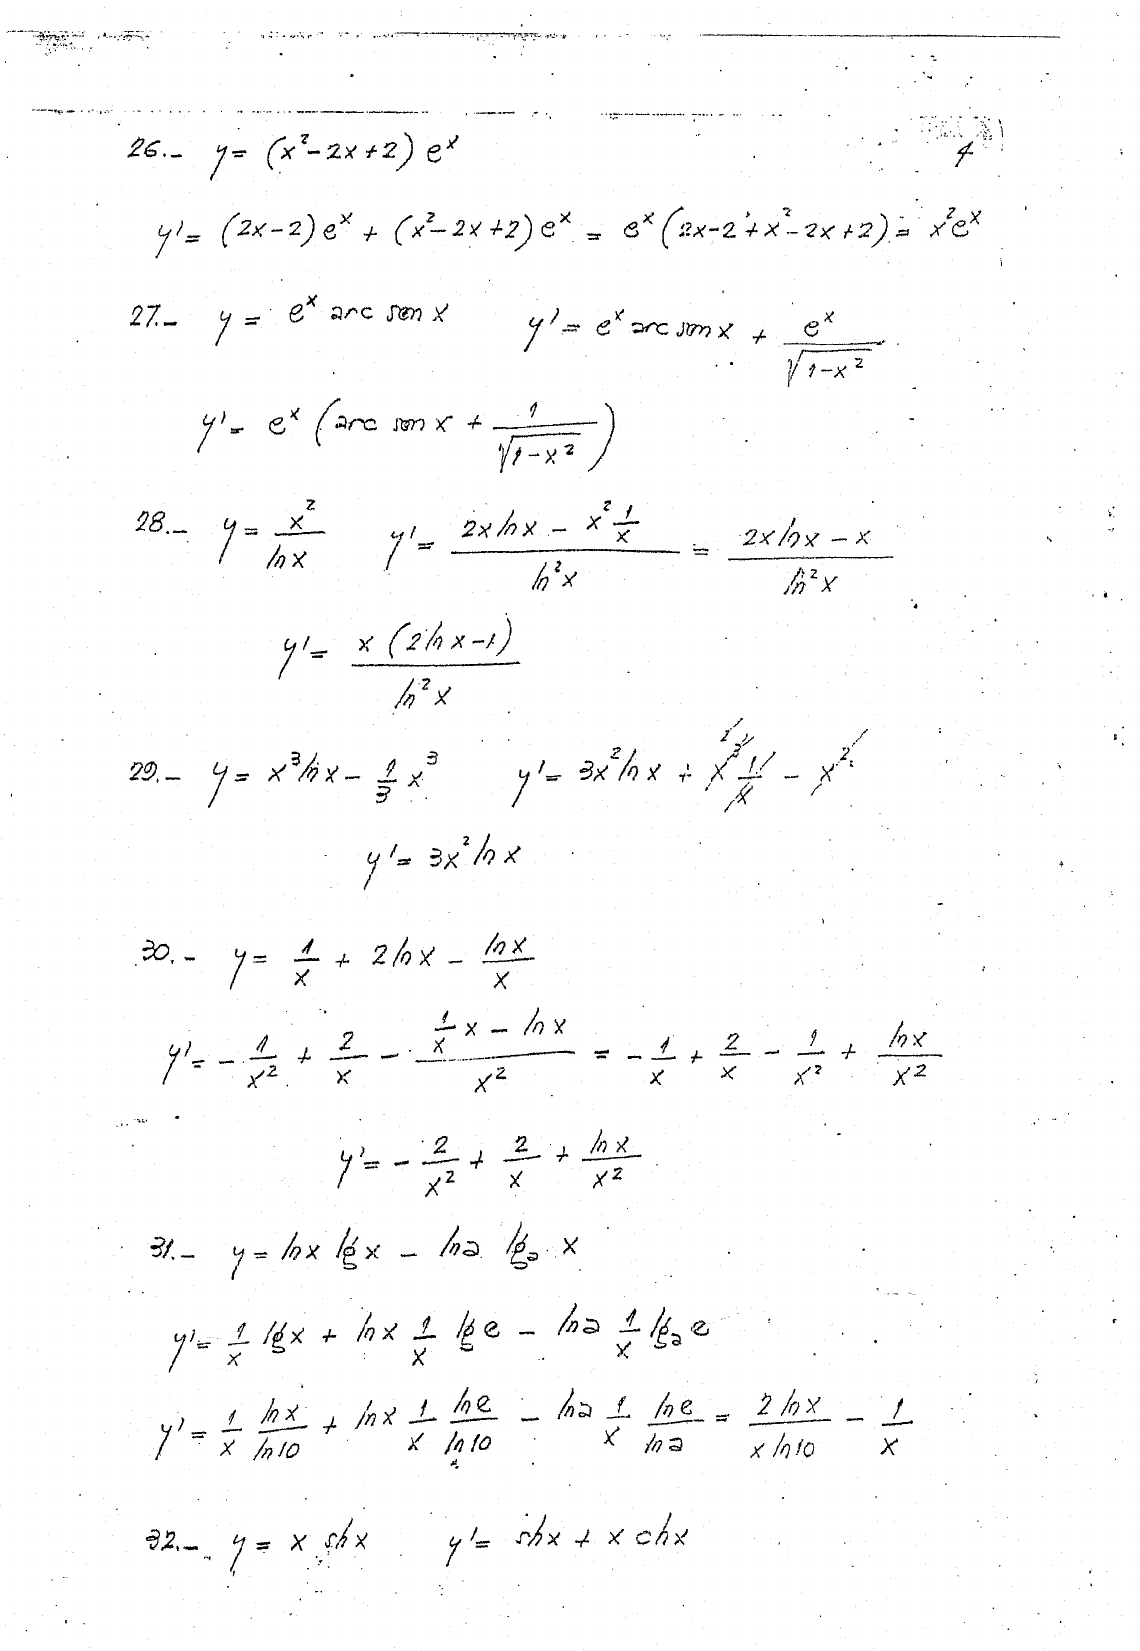 4
26.- y = (x²-2x+2) eˣ
y' = (2x-2)eˣ + (x²-2x+2)eˣ = eˣ(2x-2+x²-2x+2) = x²eˣ
27.- y = eˣ arc sen x y' = eˣ arc sen x + eˣ/√(1-x²)
y' = eˣ (arc sen x + 1/√(1-x²))
28.- y = x²/ln x y' = (2x ln x - x² 1/x)/ln²x = (2x ln x - x)/ln²x
y' = x(2 ln x-1)/ln²x
29.- y = x³ ln x - 1/3 x³ y' = 3x² ln x + x³ 1/x - x²
y' = 3x² ln x
30.- y = 1/x + 2 ln x - ln x/x
y' = - 1/x² + 2/x - (1/x x - ln x)/x² = - 1/x + 2/x - 1/x² + ln x/x²
y' = - 2/x² + 2/x + ln x/x²
31.- y = ln x lg x - ln a lgₐ x
y' = 1/x lg x + ln x 1/x lg e - ln a 1/x lgₐ e
y' = 1/x ln x/ln 10 + ln x 1/x ln e/ln 10 - ln a 1/x ln e/ln a = 2 ln x/(x ln 10) - 1/x
32.- y = x sh x y' = sh x + x ch x